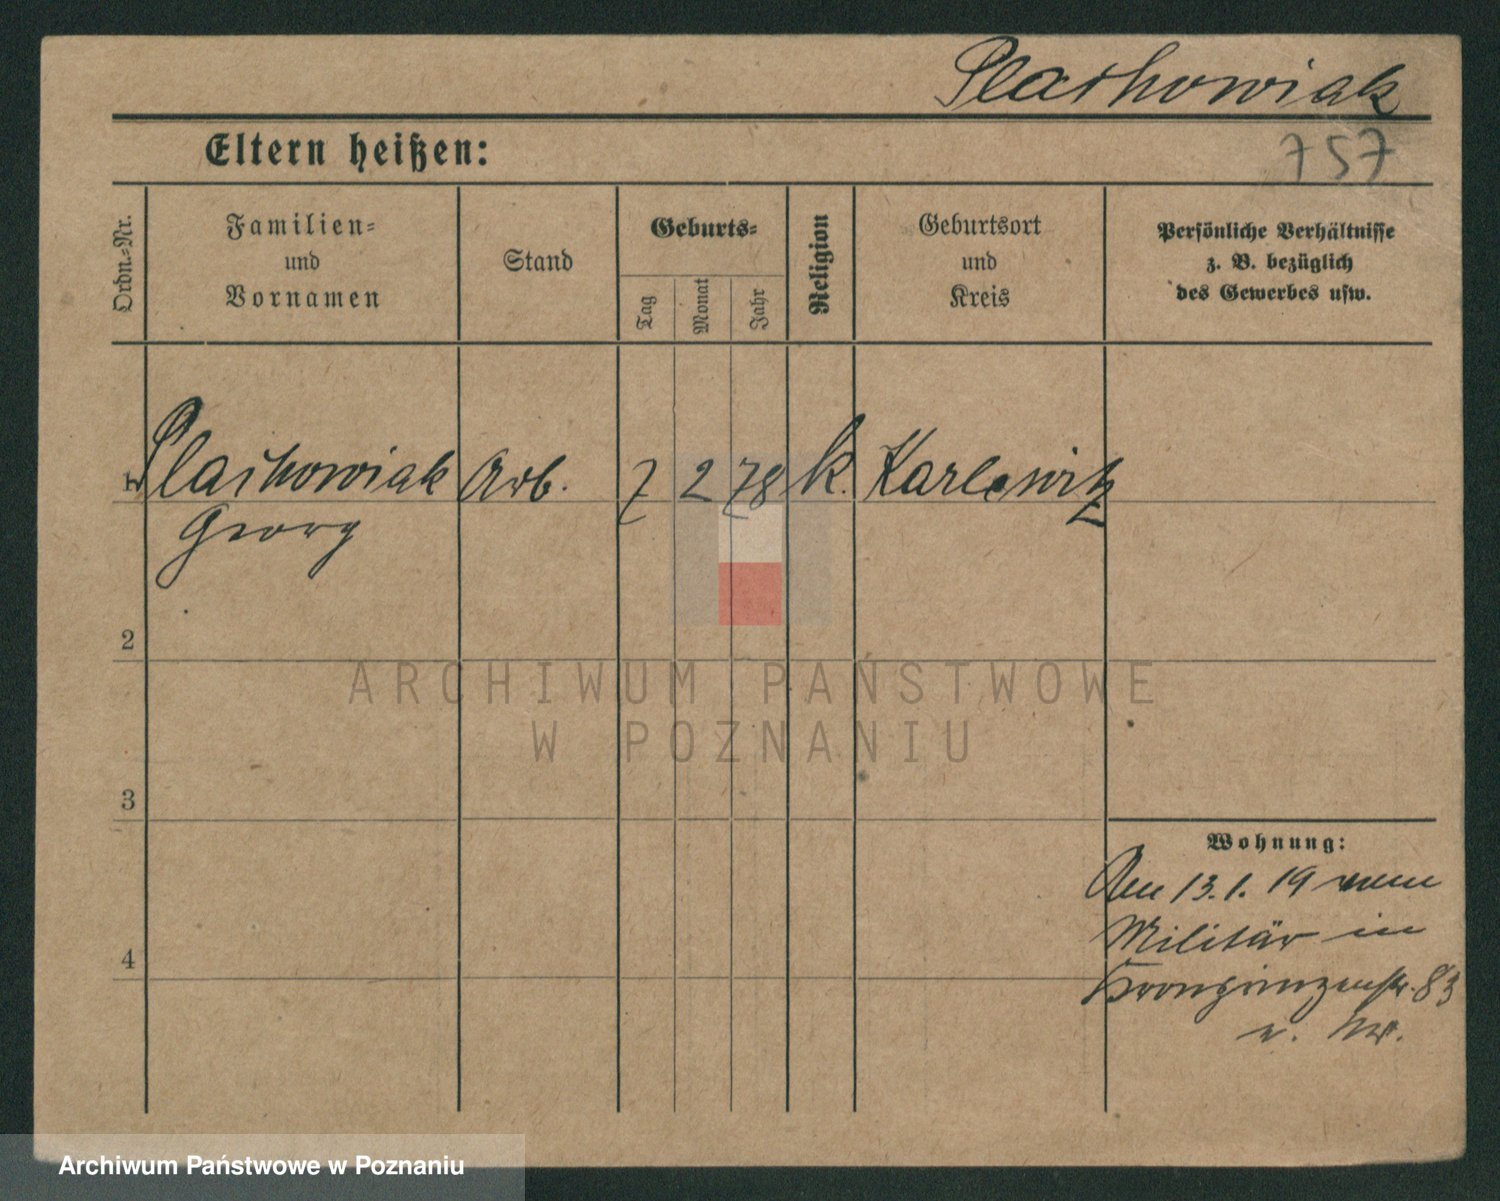 Plachowiak
757
Eltern heißen:
Ordn.-Nr.
Familien-
und
Vornamen
Stand
Geburts-
Tag
Monat
Jahr
Religion
Geburtsort
und
Kreis
Persönliche Verhältnisse
z. B. bezüglich
des Gewerbes usw.
1 Plachowiak Arb. 7 2 78 k. Karlewitz
Georg
2
3
4
Wohnung:
Am 13.1.19 vom
Militär in
Kronprinzenstr. 83
ARCHIWUM PAŃSTWOWE
W POZNANIU
Archiwum Państwowe w Poznaniu